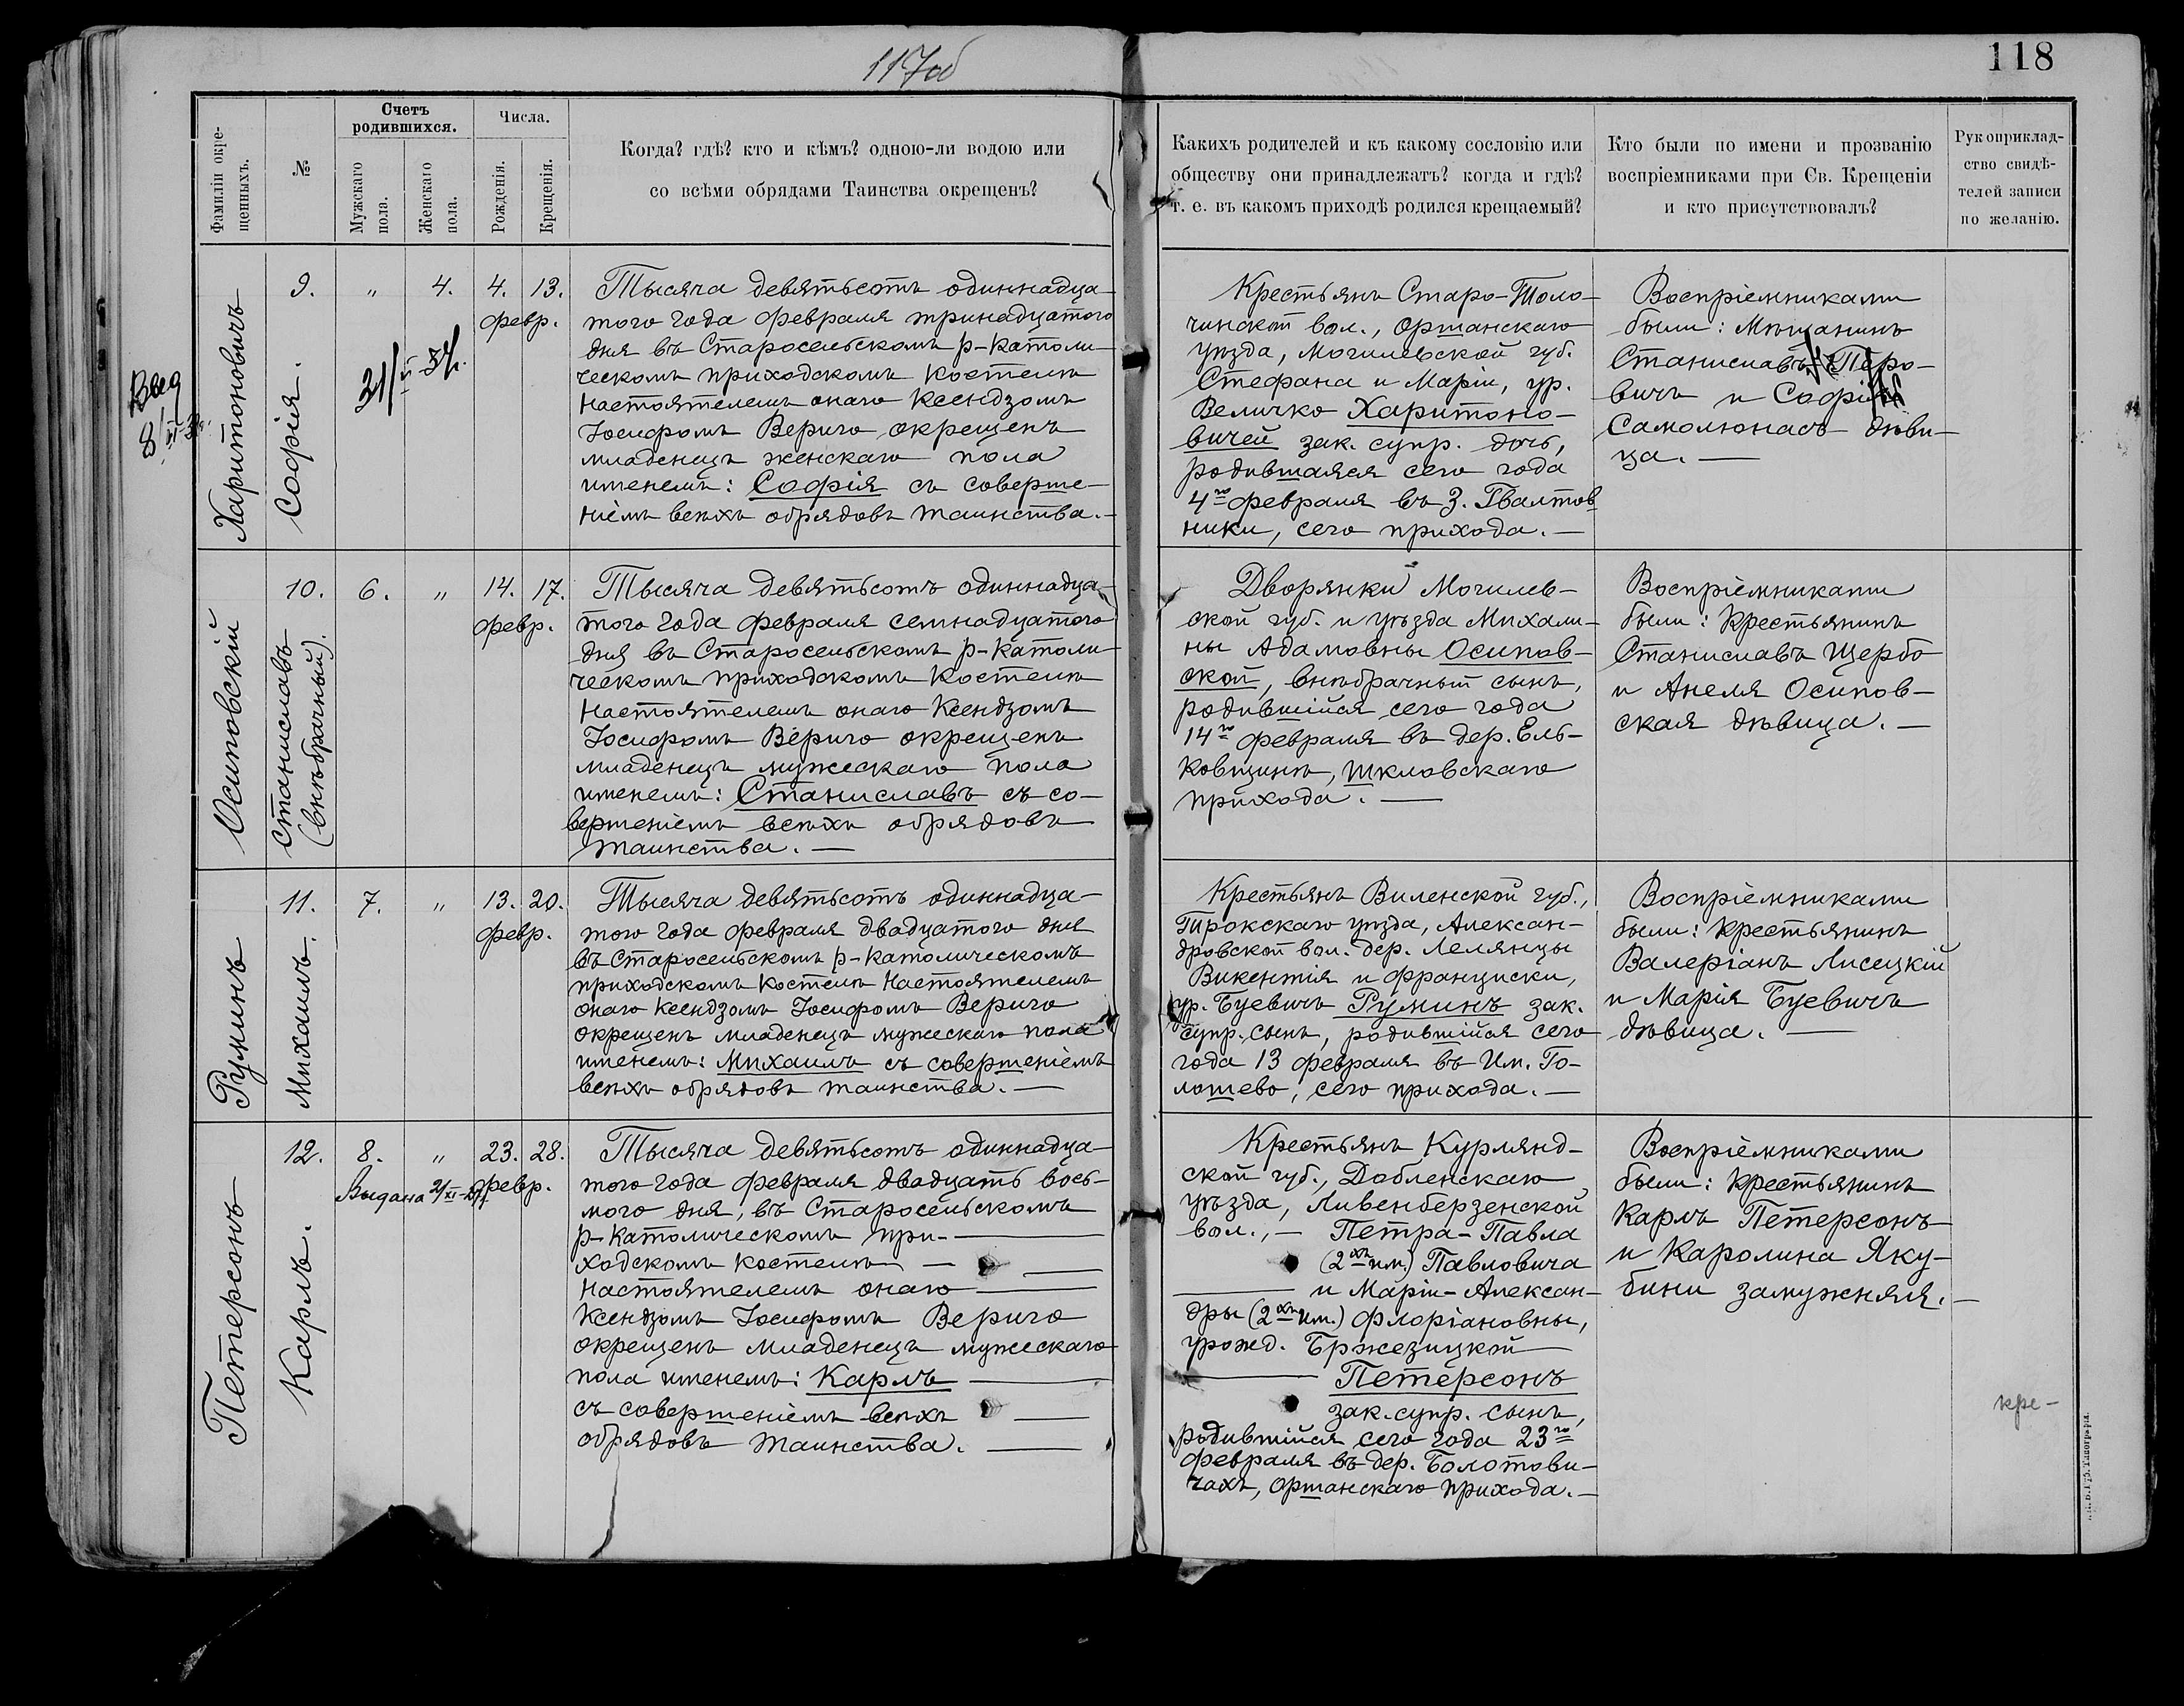 117об
118
Фамиліи окре-
щенныхъ.
№
Счетъ
родившихся.
Мужскаго
пола.
Женскаго
пола.
Числа.
Рожденія.
Крещенія.
Когда? гдѣ? кто и кѣмъ? одною-ли водою или
со всѣми обрядами Таинства окрещенъ?
Какихъ родителей и къ какому сословію или
обществу они принадлежатъ? когда и гдѣ?
т. е. въ какомъ приходѣ родился крещаемый?
Кто были по имени и прозванію
воспріемниками при Св. Крещеніи
и кто присутствовалъ?
Рукоприклад-
ство свидѣ-
телей записи
по желанію.
Харитоновичъ
9.
Софія.
"
4.
4. 13.
февр.
Тысяча девятьсотъ одиннадца-
того года февраля тринадцатого
дня въ Старосельскомъ р-католи-
ческомъ приходскомъ костелѣ
Настоятелемъ онаго Ксендзомъ
Іосифомъ Вериго окрещенъ
младенецъ женскаго пола
именемъ: Софія съ соверше-
ніемъ всѣхъ обрядовъ таинства.—
Крестьянъ Старо-Толо-
чинской вол., Оршанскаго
уѣзда, Могилевской губ.
Стефана и Маріи, ур.
Величко Харитоно-
вичей зак. супр. дочь,
родившаяся сего года
4го февраля въ З. Гвалтов-
ники, сего прихода.—
Воспріемниками
были: Мѣщанинъ
Станиславъ Перо-
вичъ и Софія
Самолюнасъ дѣви-
ца.—
Осиповскій
10.
Станиславъ
(внѣбрачный).
6.
"
14. 17.
февр.
Тысяча девятьсотъ одиннадца-
того года февраля семнадцатого
дня въ Старосельскомъ р-католи-
ческомъ приходскомъ костелѣ
Настоятелемъ онаго Ксендзомъ
Іосифомъ Вериго окрещенъ
младенецъ мужескаго пола
именемъ: Станиславъ съ со-
вершеніемъ всѣхъ обрядовъ
таинства.—
Дворянки Могилев-
ской губ. и уѣзда Михали-
ны Адамовны Осипов-
ской, внѣбрачный сынъ,
родившійся сего года
14го февраля въ дер. Ель-
ковщинѣ, Шкловскаго
прихода.—
Воспріемниками
были: крестьянинъ
Станиславъ Щербо
и Анеля Осипов-
ская дѣвица.—
Руминъ
11.
Михаилъ.
7.
"
13. 20.
февр.
Тысяча девятьсотъ одиннадца-
того года февраля двадцатого дня
въ Старосельскомъ р-католическомъ
приходскомъ костелѣ Настоятелемъ
онаго Ксендзомъ Іосифомъ Вериго
окрещенъ младенецъ мужескаго пола
именемъ: Михаилъ съ совершеніемъ
всѣхъ обрядовъ таинства.—
Крестьянъ Виленской губ.,
Трокскаго уѣзда, Алексан-
дровской вол. дер. Лелянцы
Викентія и Франциски,
ур. Буевичъ Руминъ зак.
супр. сынъ, родившійся сего
года 13 февраля въ Им. Го-
лошево, сего прихода.—
Воспріемниками
были: крестьянинъ
Валеріанъ Лисецкій
и Марія Буевичъ
дѣвица.—
Петерсонъ
12.
Карлъ.
8.
"
23. 28.
февр.
Выдана
Тысяча девятьсотъ одиннадца-
того года февраля двадцать вось-
мого дня, въ Старосельскомъ
р-католическомъ при-
ходскомъ костелѣ —
Настоятелемъ онаго
Ксендзомъ Іосифомъ Вериго
окрещенъ младенецъ мужескаго
пола именемъ: Карлъ
съ совершеніемъ всѣхъ
обрядовъ таинства. —
Крестьянъ Курлянд-
ской губ., Добленскаго
уѣзда, Ливенберзенской
вол., — Петра-Павла
(2хъ им.) Павловича
и Маріи-Алексан-
дры (2хъ им.) Флоріановны,
урожд. Бржезицкой
Петерсонъ
зак. супр. сынъ,
родившійся сего года 23го
февраля въ дер. Болотови-
чахъ, Оршанскаго прихода.—
Воспріемниками
были: крестьянинъ
Карлъ Петерсонъ
и Каролина Яку-
бини замужняя.—
кре-